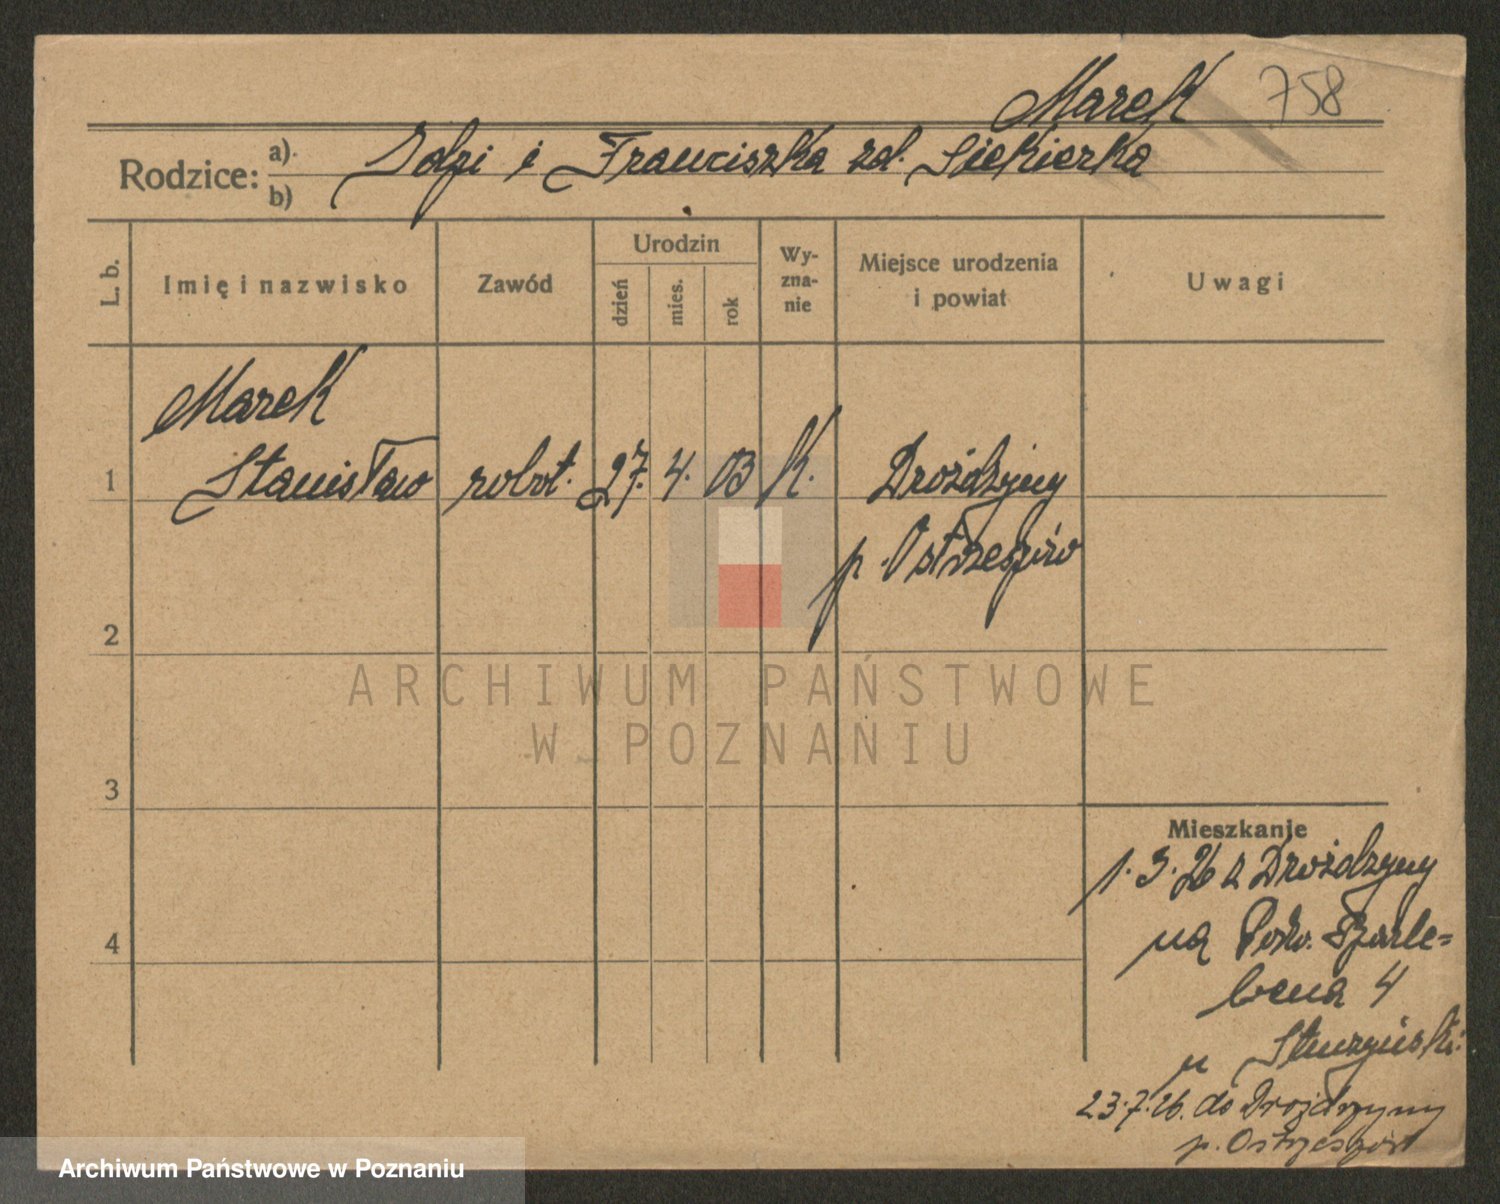 Marek 758
Rodzice: a). b)
i Franciszka zd. Siekierka
L. b.
Imię i nazwisko
Zawód
Urodzin
dzień
mies.
rok
Wy-
zna-
nie
Miejsce urodzenia
i powiat
Uwagi
Marek
1 Stanisław robot. 27. 4. 03 K. Drożdżyny
p. Ostrzeszów
2
3
4
Mieszkanie
1. 3. 26 z Drożdżyny
na
4
u
23.7.26. do Drożdżyny
p. Ostrzeszów
ARCHIWUM PAŃSTWOWE
W POZNANIU
Archiwum Państwowe w Poznaniu